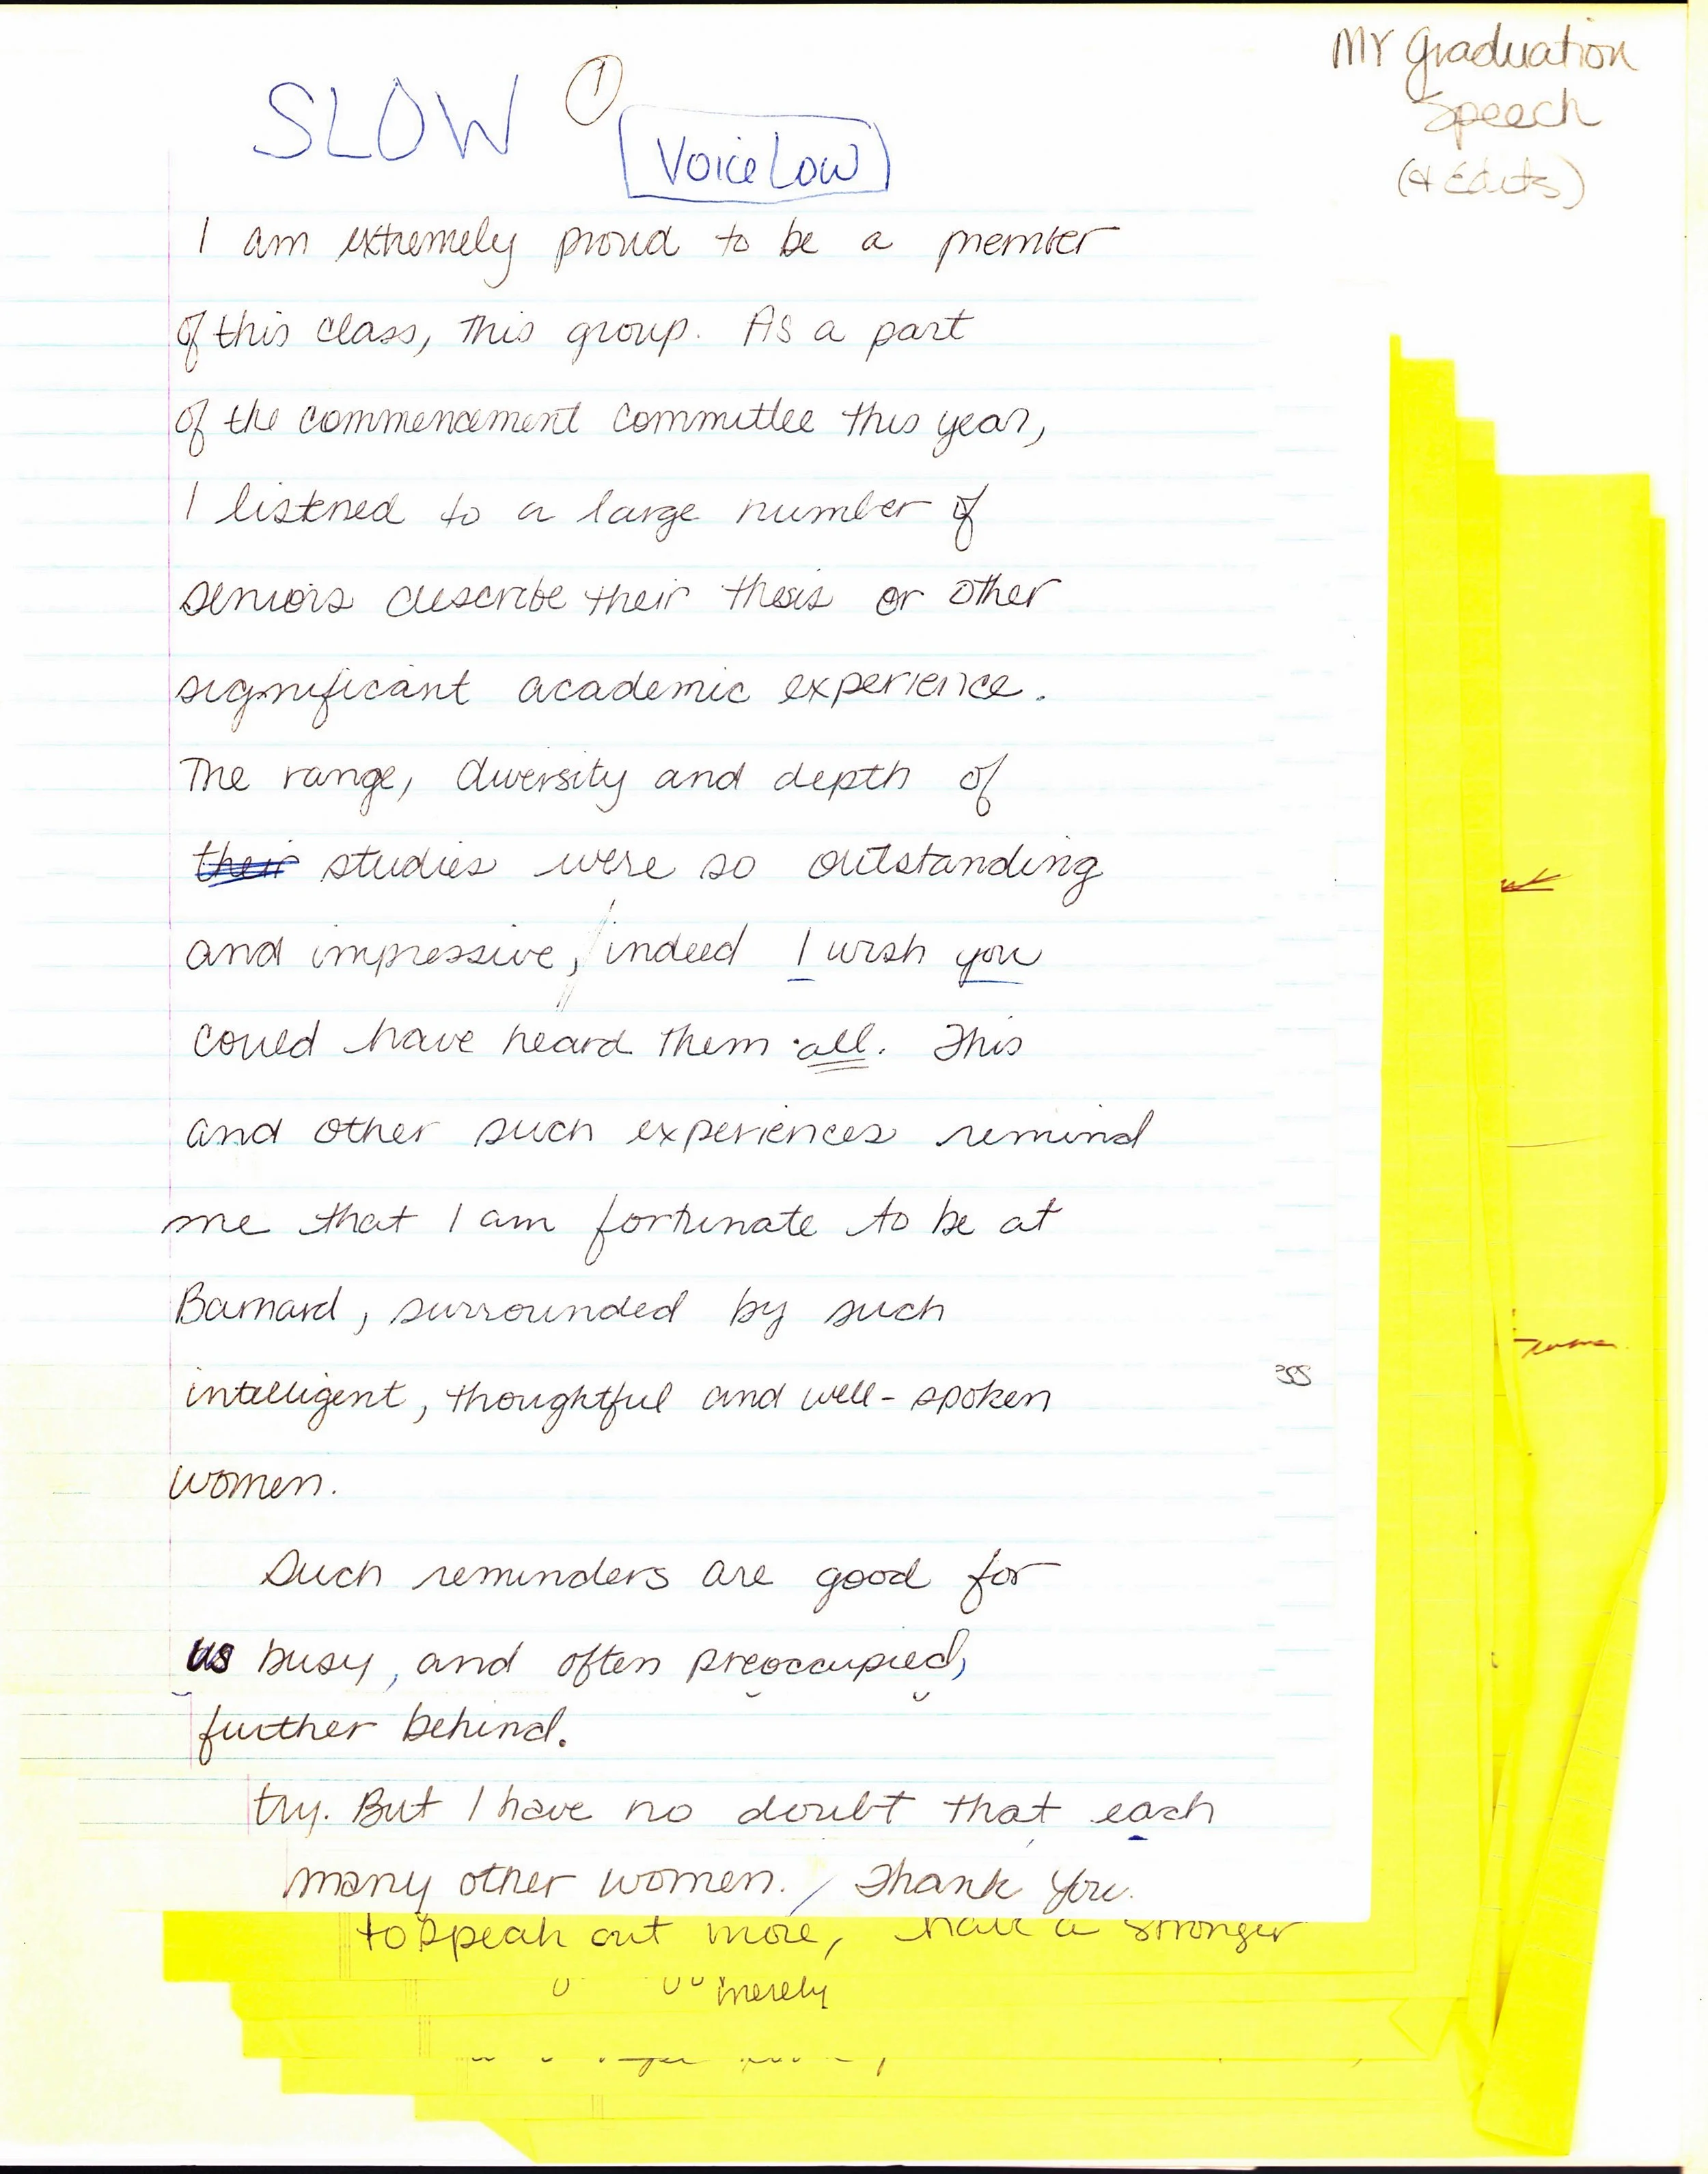 My Graduation
Speech
(+ Edits)
SLOW
①
Voice Low
I am extremely proud to be a member
of this class, this group. As a part
of the commencement committee this year,
I listened to a large number of
seniors describe their thesis or other
significant academic experience.
The range, diversity and depth of
their studies were so outstanding
and impressive, indeed I wish you
could have heard them all. This
and other such experiences remind
me that I am fortunate to be at
Barnard, surrounded by such
intelligent, thoughtful and well-spoken
women.
Such reminders are good for
us busy, and often preoccupied,
further behind.
try. But I have no doubt that each
many other women. / Thank you.
to speak out more, have a stronger
merely